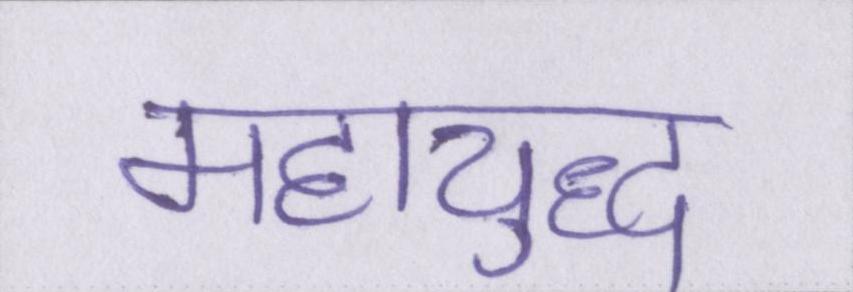 महायुद्ध